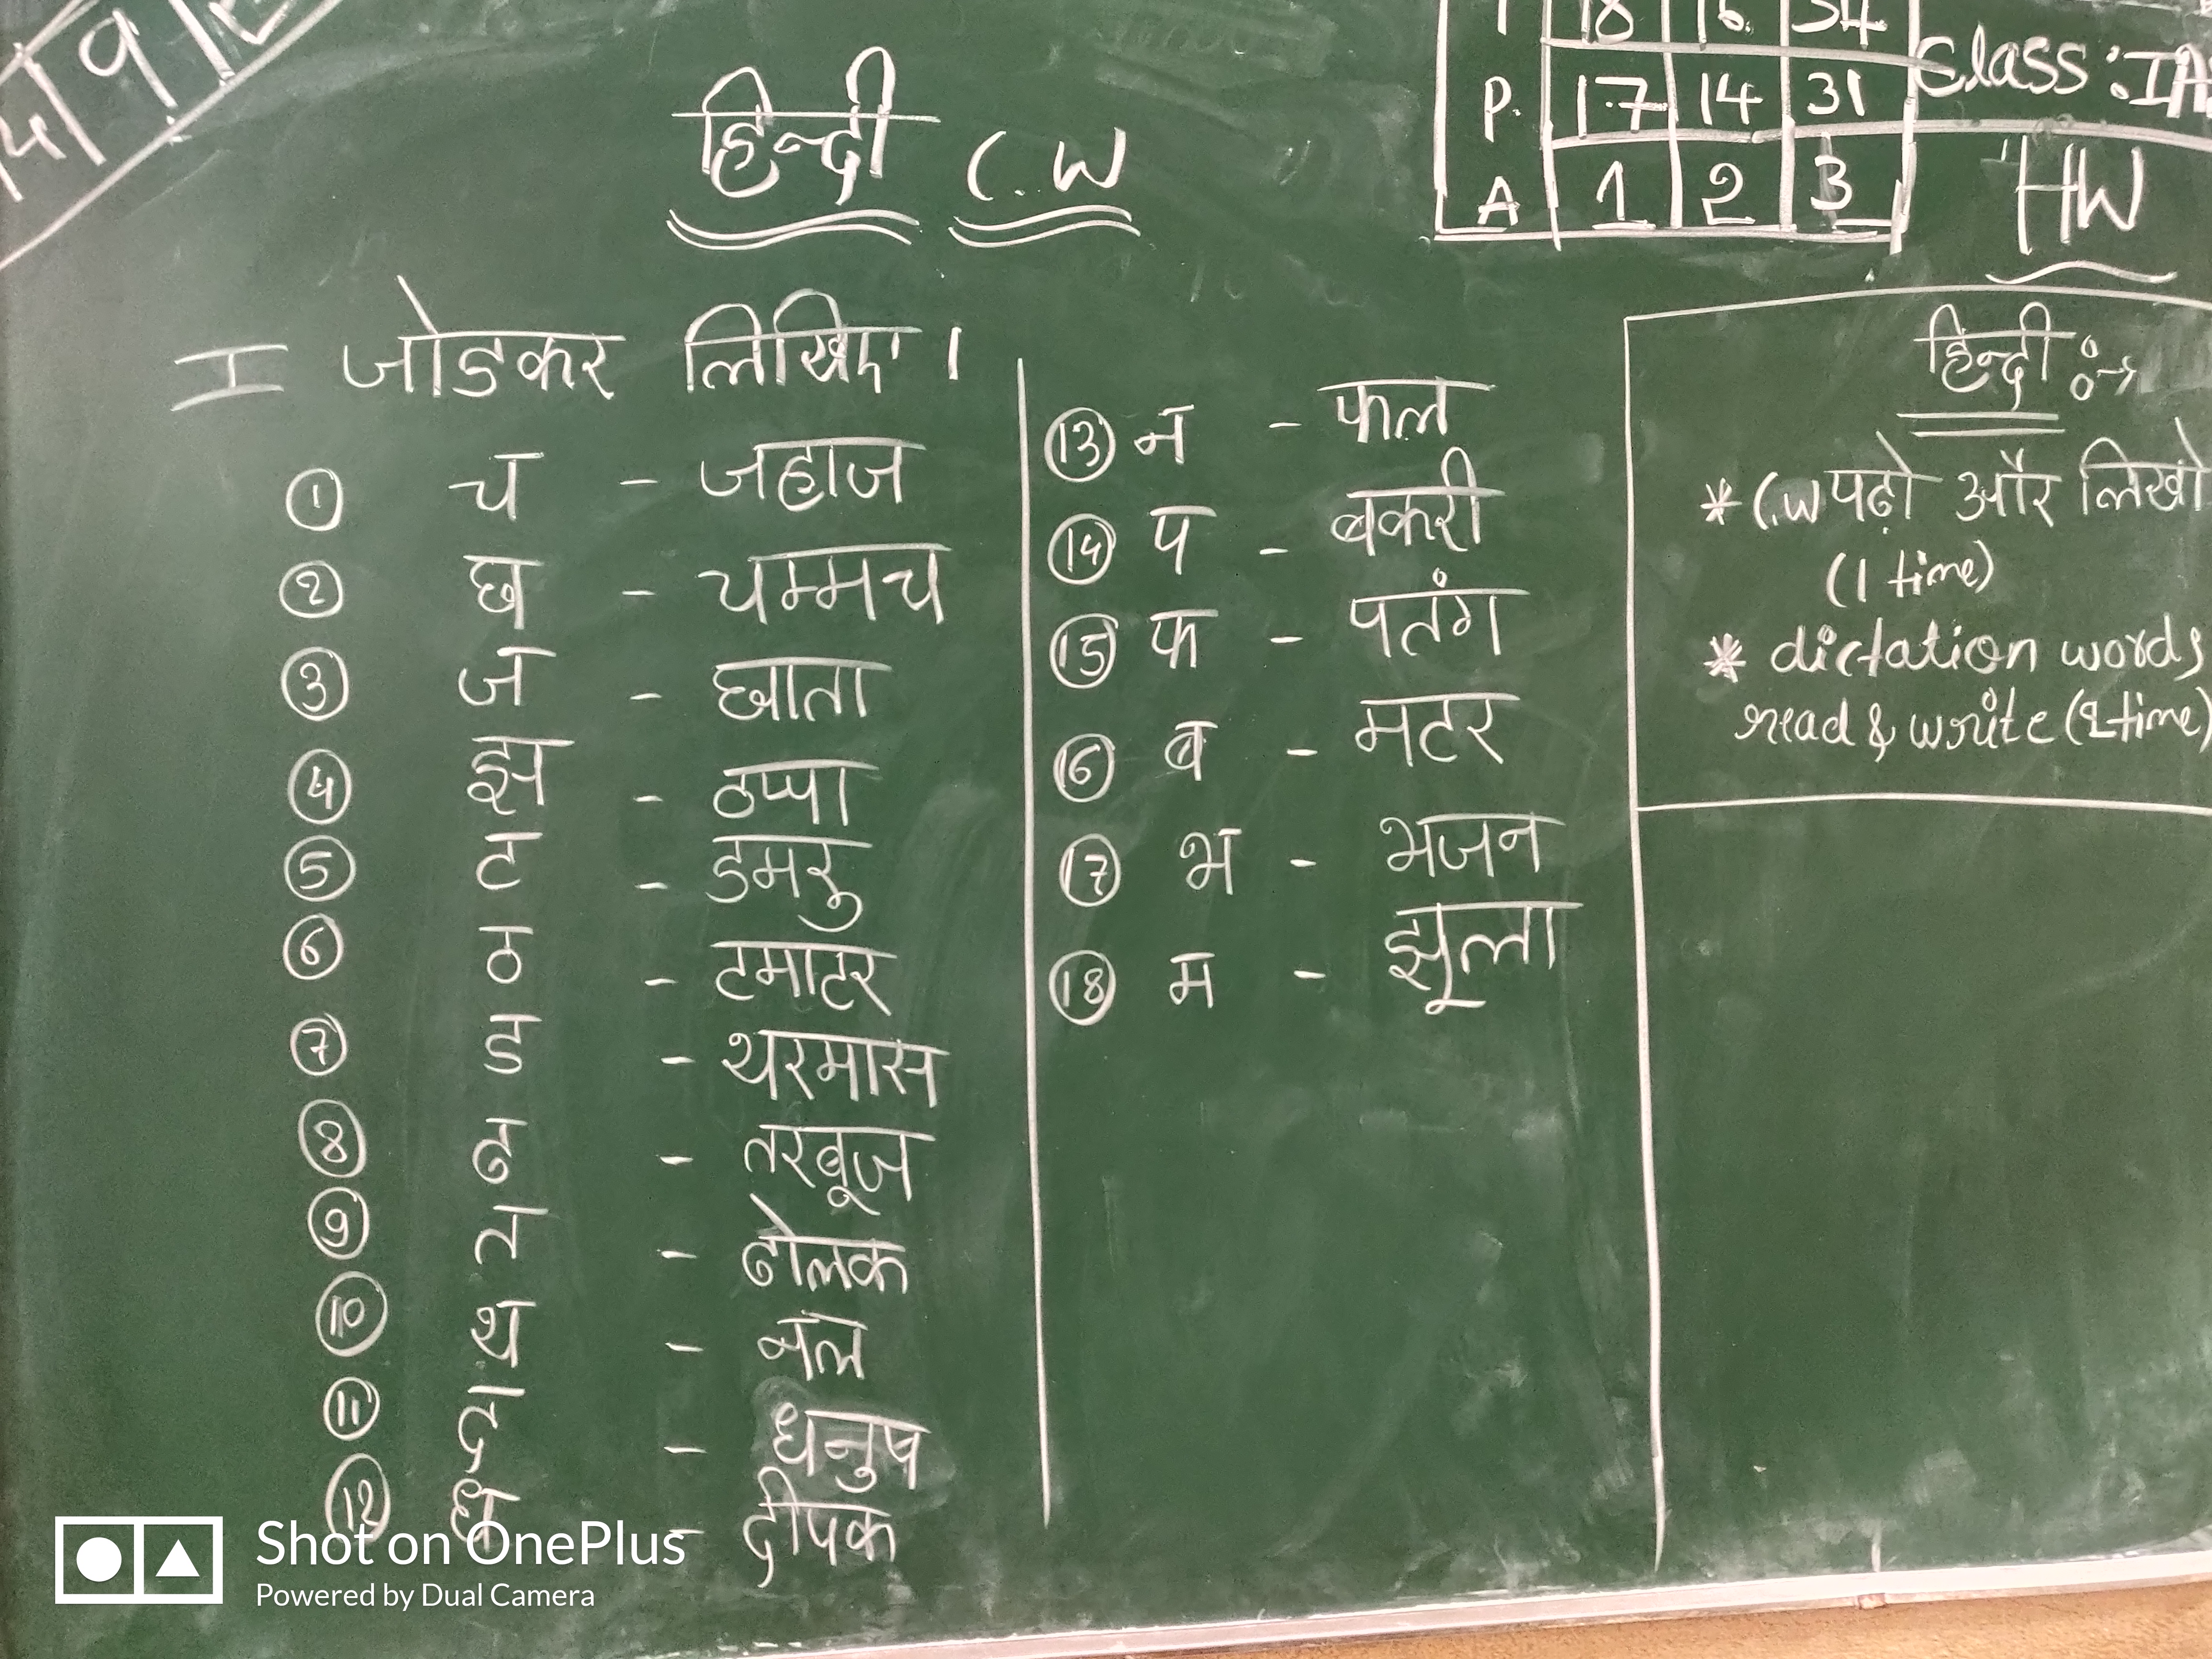 हिन्दी C.W
I जोडकर लिखिए।
① च - जहाज
② छ - चम्मच
③ ज - छाता
④ झ - ठप्पा
⑤ ट - डमरु
⑥ ठ - टमाटर
⑦ ड - थरमास
⑧ ढ - तरबूज
⑨ त - ढोलक
⑩ थ - नल
⑪ द - धनुष
⑫ ध - दीपक
⑬ न - फल
⑭ प - बकरी
⑮ फ - पतंग
⑯ ब - मटर
⑰ भ - भजन
⑱ म - झूला
18 16 34
P. 17 14 31
A 1 2 3
Class:
HW
हिन्दी :→
* C.W पढ़ो और लिखो
(1 time)
* dictation words
read & write (2 time)
Shot on OnePlus
Powered by Dual Camera